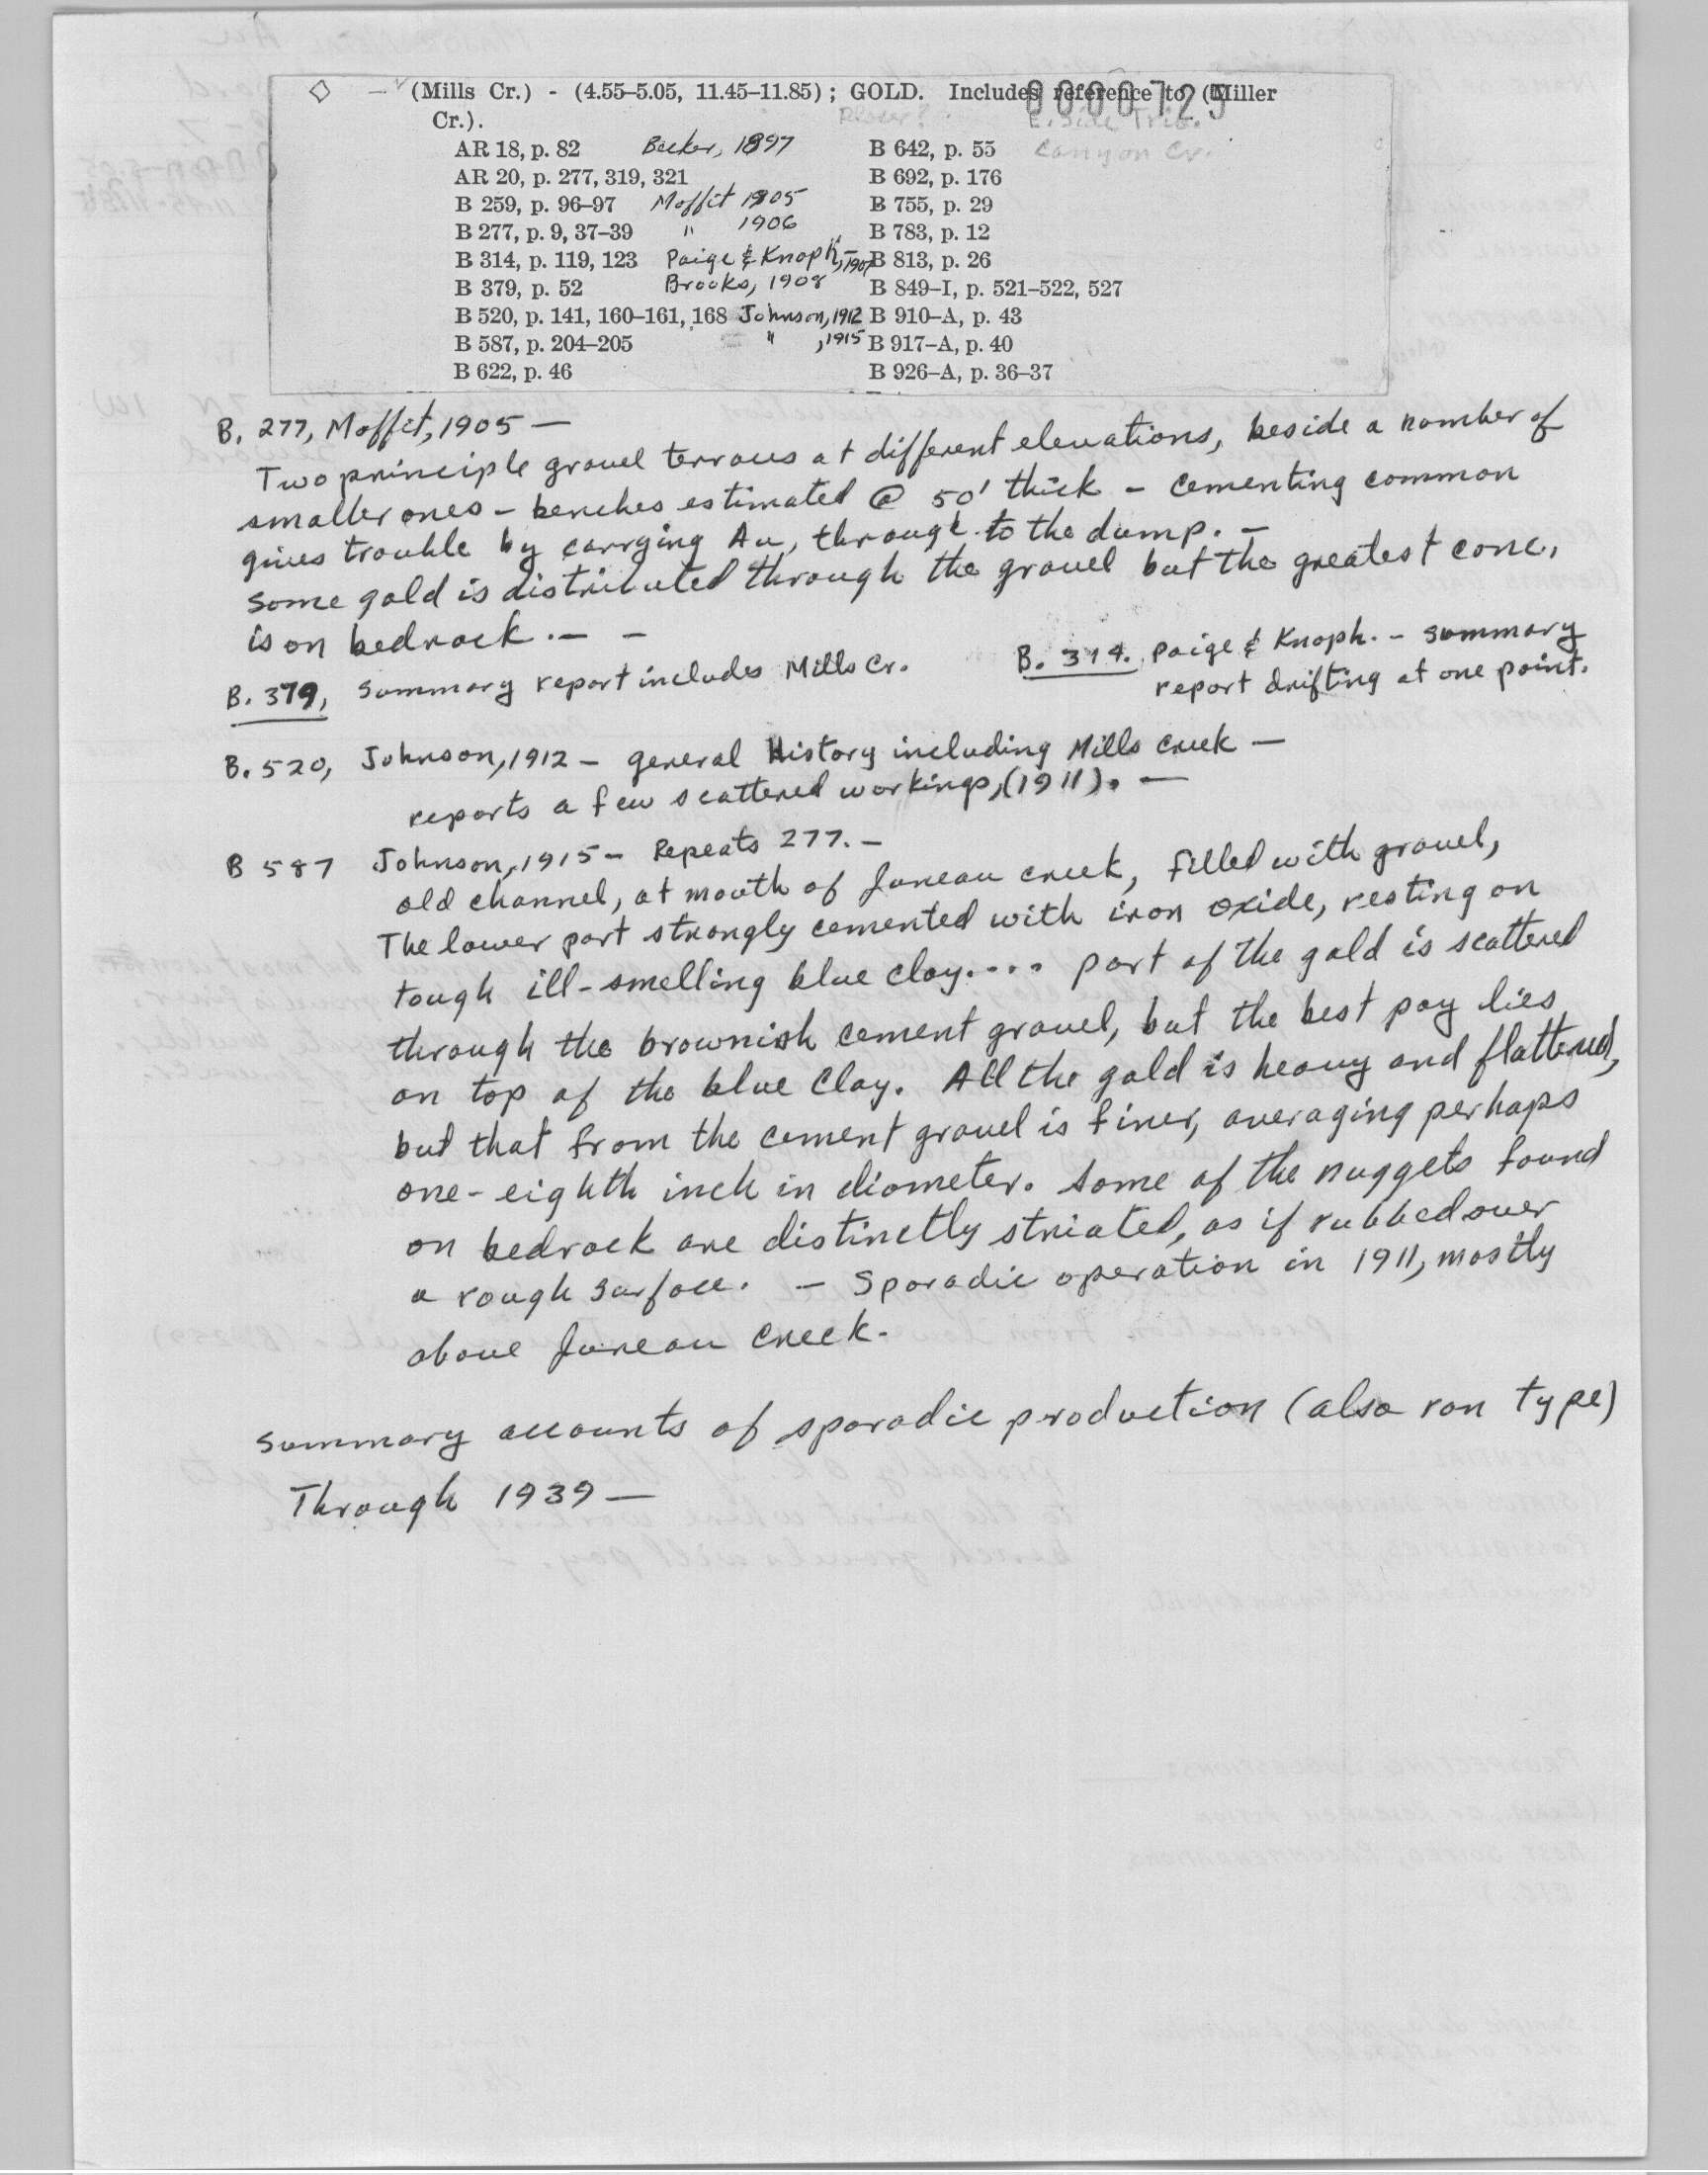 (Mills Cr.) - (4.55–5.05, 11.45–11.85); GOLD. Includes reference to (Miller
0000725
Cr.).
E. Side Trib.
Canyon Cr.
AR 18, p. 82 Becker, 1897
AR 20, p. 277, 319, 321
B 259, p. 96–97 Moffit 1905
B 277, p. 9, 37–39 " 1906
B 314, p. 119, 123 Paige & Knoph, 1907
B 379, p. 52 Brooks, 1908
B 520, p. 141, 160–161, 168 Johnson, 1912
B 587, p. 204–205 " , 1915
B 622, p. 46
B 642, p. 55
B 692, p. 176
B 755, p. 29
B 783, p. 12
B 813, p. 26
B 849–I, p. 521–522, 527
B 910–A, p. 43
B 917–A, p. 40
B 926–A, p. 36–37
B. 277, Moffit, 1905 —
Two principle gravel terraces at different elevations, beside a number of
smaller ones – benches estimated @ 50' thick – cementing common
gives trouble by carrying Au, through to the dump. –
Some gold is distributed through the gravel but the greatest conc.
is on bedrock. — –
B. 379, Summary report includes Mills Cr.
B. 314. Paige & Knoph. – summary
report drifting at one point.
B. 520, Johnson, 1912 – general History including Mills creek —
reports a few scattered workings, (1911). —
B 587 Johnson, 1915 – Repeats 277. –
old channel, at mouth of Juneau creek, filled with gravel,
The lower part strongly cemented with iron oxide, resting on
tough ill-smelling blue clay.... part of the gold is scattered
through the brownish cement gravel, but the best pay lies
on top of the blue clay. All the gold is heavy and flattened,
but that from the cement gravel is finer, averaging perhaps
one-eighth inch in diameter. Some of the nuggets found
on bedrock are distinctly striated, as if rubbed over
a rough surface. — Sporadic operation in 1911, mostly
above Juneau Creek.
Summary accounts of sporadic production (also ran type)
Through 1939 —